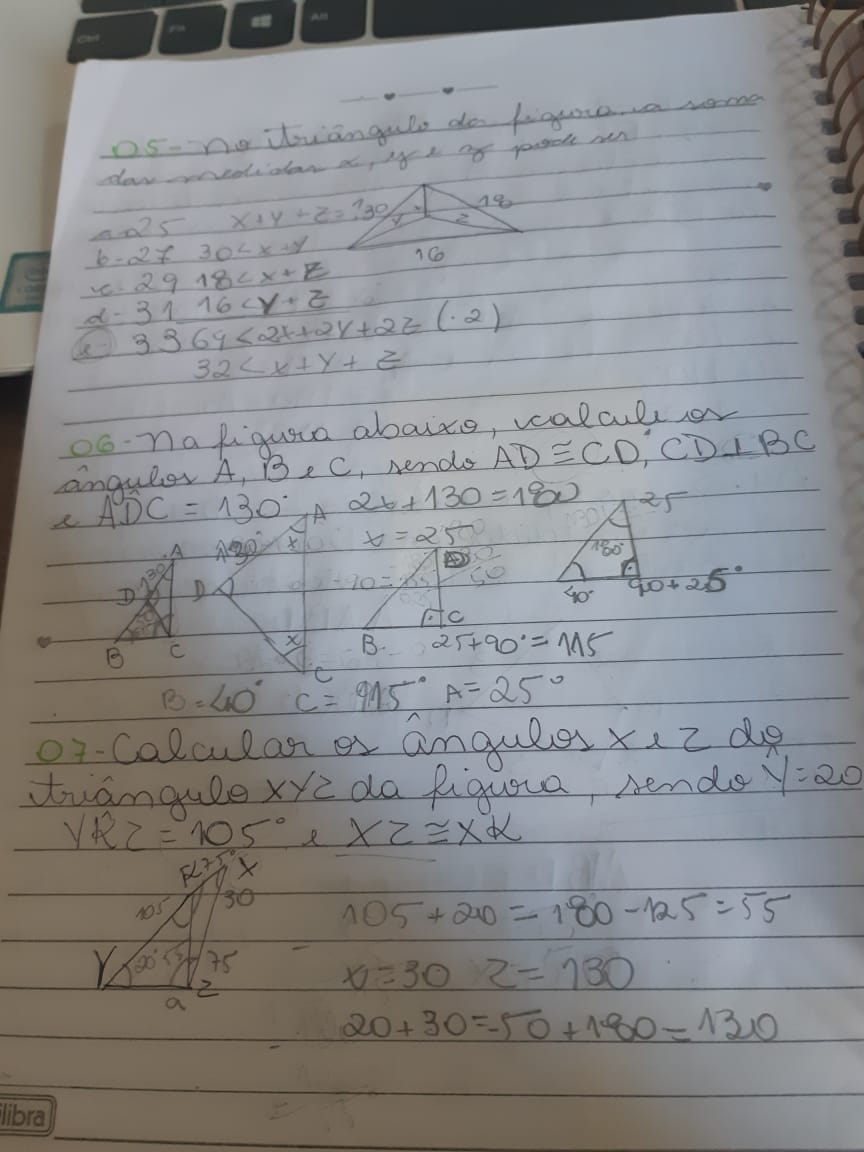 Ctrl
Fn
Alt
05- No triângulo da figura, a soma
das medidas x, y e z pode ser
a- 25 x+y+z=? 30 18
b- 27 30 < x+y
c- 29 18 < x+z
16
d- 31 16 < y+z
e- 33 64 < 2x+2y+2z (.2)
32 < x+y+z
06- Na figura abaixo, calcule os
ângulos A, B e C, sendo AD ≅ CD, CD ⊥ BC
e AD̂C = 130° 2x+130=180
x = 25
A x 25
130 A D
D D 180°
B C x C B C 40° 90+25°
25+90°=115
B=40° C= 115° A=25°
07- Calcular os ângulos x e z do
triângulo XYZ da figura, sendo Ŷ=20
YK̂Z = 105° e XZ ≅ XK
K 75° X
105 30 105+20=180-125=55
Y 20° 75 x=30 z=130
a z
20+30=50+180=130
libra